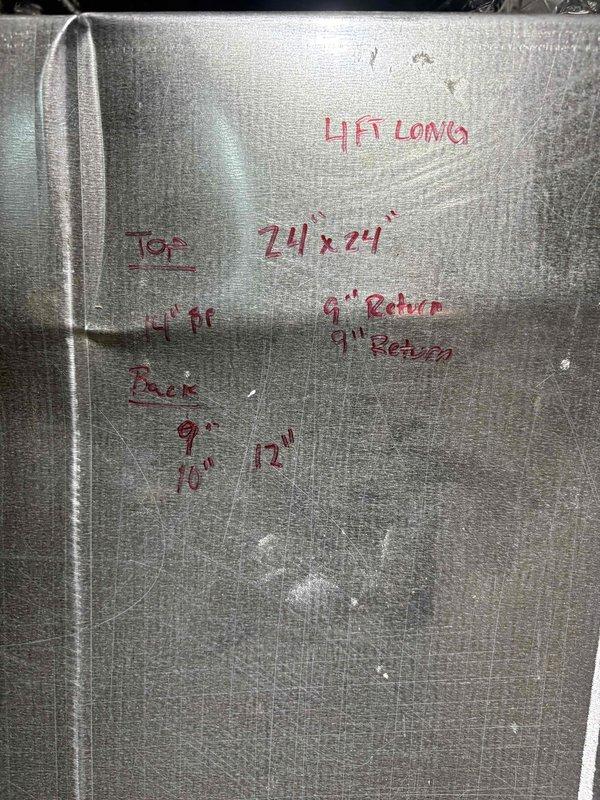 4FT LONG
Top 24" x 24"
14" BP 9" Return
9" Return
Back
9"
10" 12"